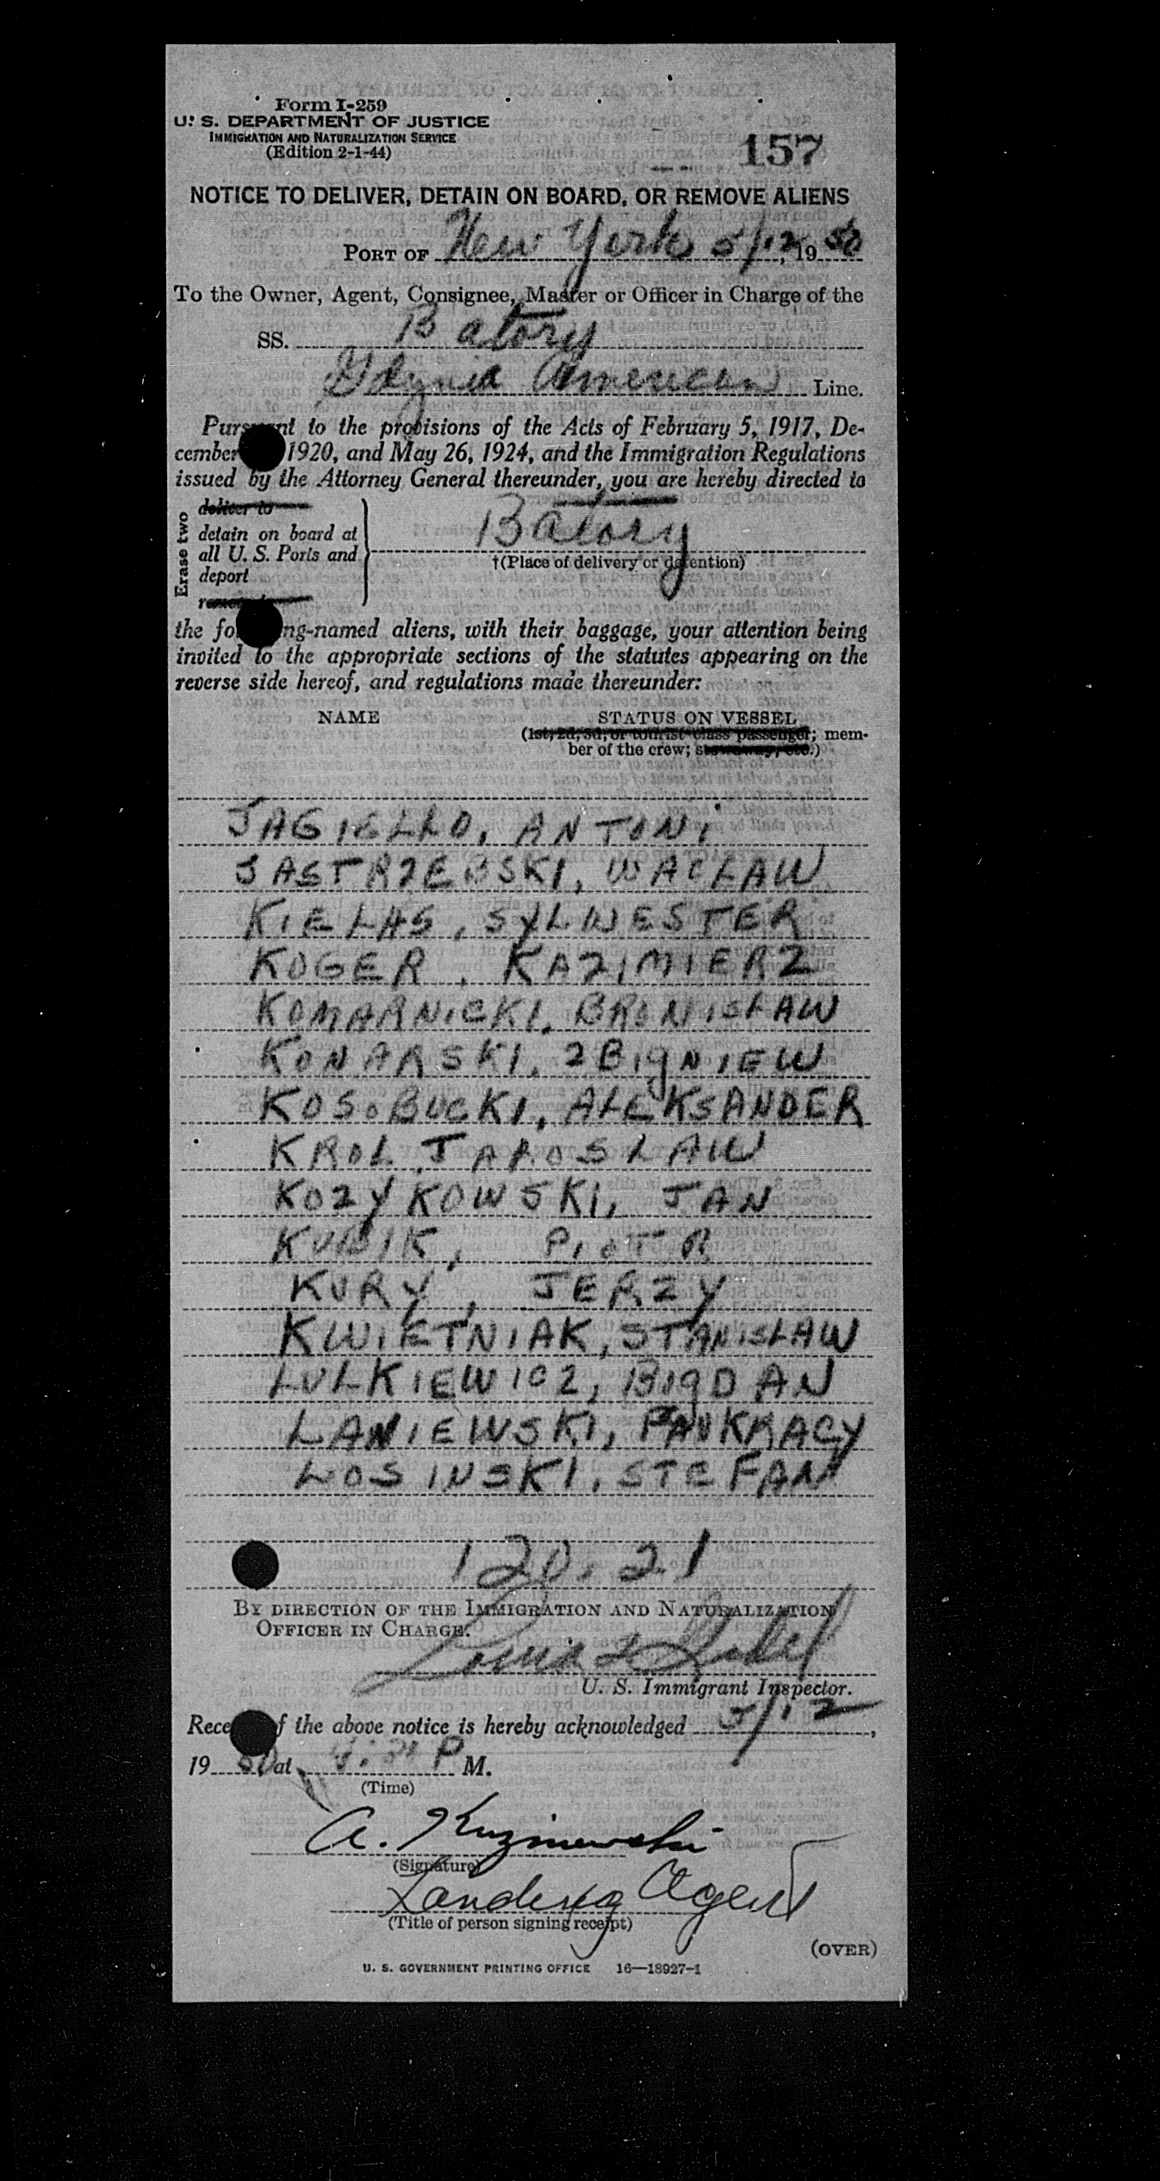 Form I-259
U. S. DEPARTMENT OF JUSTICE
IMMIGRATION AND NATURALIZATION SERVICE
(Edition 2-1-44)
157
NOTICE TO DELIVER, DETAIN ON BOARD, OR REMOVE ALIENS
PORT OF New York 5/12, 1950
To the Owner, Agent, Consignee, Master or Officer in Charge of the
SS. Batory
Gdynia American Line.
Pursuant to the provisions of the Acts of February 5, 1917, De-
cember 1920, and May 26, 1924, and the Immigration Regulations
issued by the Attorney General thereunder, you are hereby directed to
Erase two
deliver to
detain on board at
all U. S. Ports and
deport
Batory
†(Place of delivery or detention)
the following-named aliens, with their baggage, your attention being
invited to the appropriate sections of the statutes appearing on the
reverse side hereof, and regulations made thereunder:
NAME STATUS ON VESSEL
(1st, 2d, 3d, or tourist class passenger; mem-
ber of the crew; stowaway, etc.)
JAGIELLO, ANTONI
JASTRZEBSKI, WACŁAW
KIELAS, SYLWESTER
KOGER, KAZIMIERZ
KOMARNICKI, BRONISŁAW
KONARSKI, ZBIGNIEW
KOSOBUCKI, ALEKSANDER
KROL, JAROSŁAW
KOZYKOWSKI, JAN
KUBIK, PIOTR
KURY, JERZY
KWIETNIAK, STANISŁAW
LULKIEWICZ, BOgDAN
LANIEWSKI, PANKRACY
LOSINSKI, STEFAN
120.21
BY DIRECTION OF THE IMMIGRATION AND NATURALIZATION
OFFICER IN CHARGE:
U. S. Immigrant Inspector.
Receipt of the above notice is hereby acknowledged 5/12,
1950 at P M.
(Time)
A. Kuzniewski
(Signature)
Landing Agent
(Title of person signing receipt)
(OVER)
U. S. GOVERNMENT PRINTING OFFICE 16—18927-1